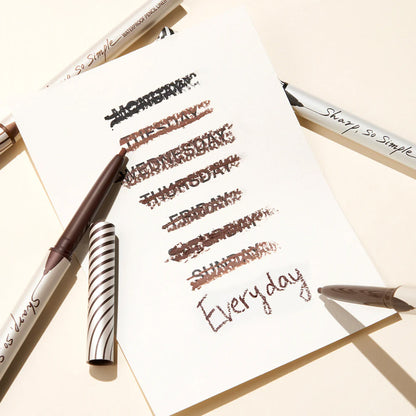 Sharp, So Simple
WATERPROOF PENCIL LINER
Sharp, So Simple
MONDAY
TUESDAY
WEDNESDAY
THURSDAY
FRIDAY
SATURDAY
SUNDAY
Everyday
Sharp, So